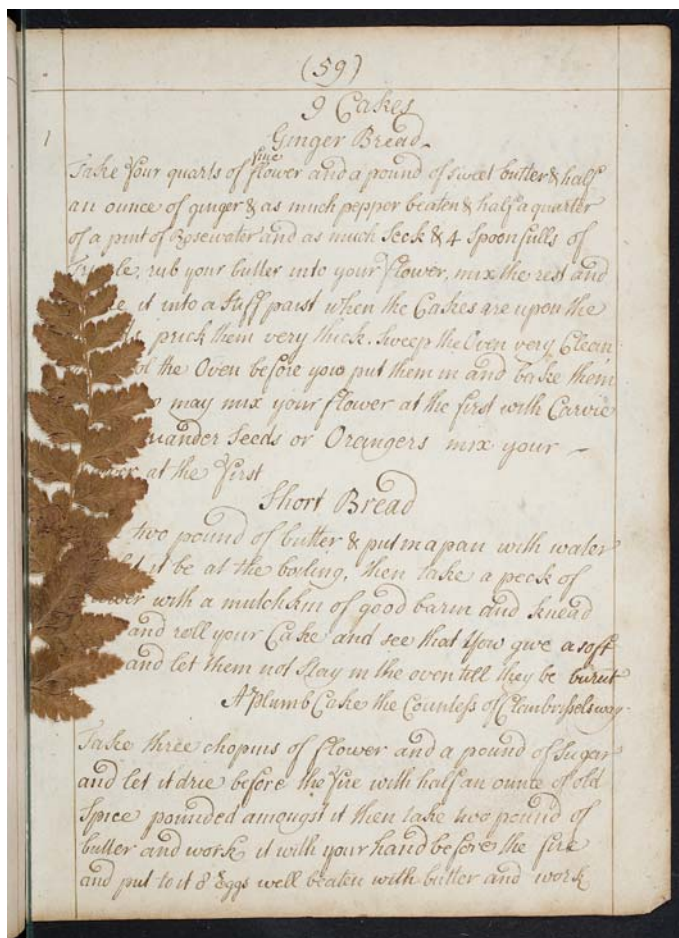 (59)
9 Cakes
1
Ginger Bread
fine
Take four quarts of flower and a pound of sweet butter & half
an ounce of ginger & as much pepper beaten & half a quarter
of a pint of Rosewater and as much Seck & 4 Spoonfulls of
rub your butter into your flower, mix the rest and
it into a stiff paist when the Cakes are upon the
prick them very thick, Sweep the Oven very Clean
the Oven before you put them in and bake them
may mix your flower at the first with Carvie
Seeds or Orangers mix your
at the first
Short Bread
two pound of butter & put in a pan with water
it be at the boyling, then take a peck of
with a mutchkin of good barm and knead
and roll your Cake and see that you give a soft
and let them not stay in the oven till they be burnt
A Plumb Cake the Countess of way
Take three chopins of flower and a pound of Sugar
and let it drie before the fire with half an ounce of old
Spice pounded amongst it then take two pound of
butter and work it with your hand before the fire
and put to it 8 Eggs well beaten with butter and work